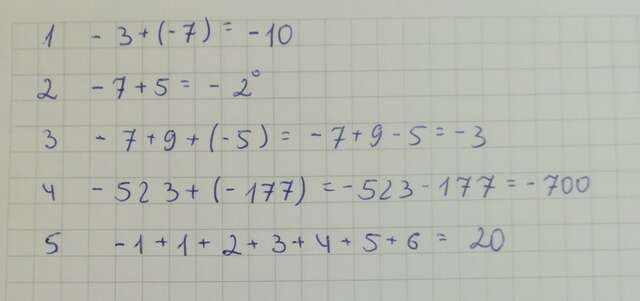 1 - 3 + (- 7) = - 10
2 - 7 + 5 = - 2°
3 - 7 + 9 + (- 5) = - 7 + 9 - 5 = - 3
4 - 523 + (- 177) = - 523 - 177 = - 700
5 - 1 + 1 + 2 + 3 + 4 + 5 + 6 = 20